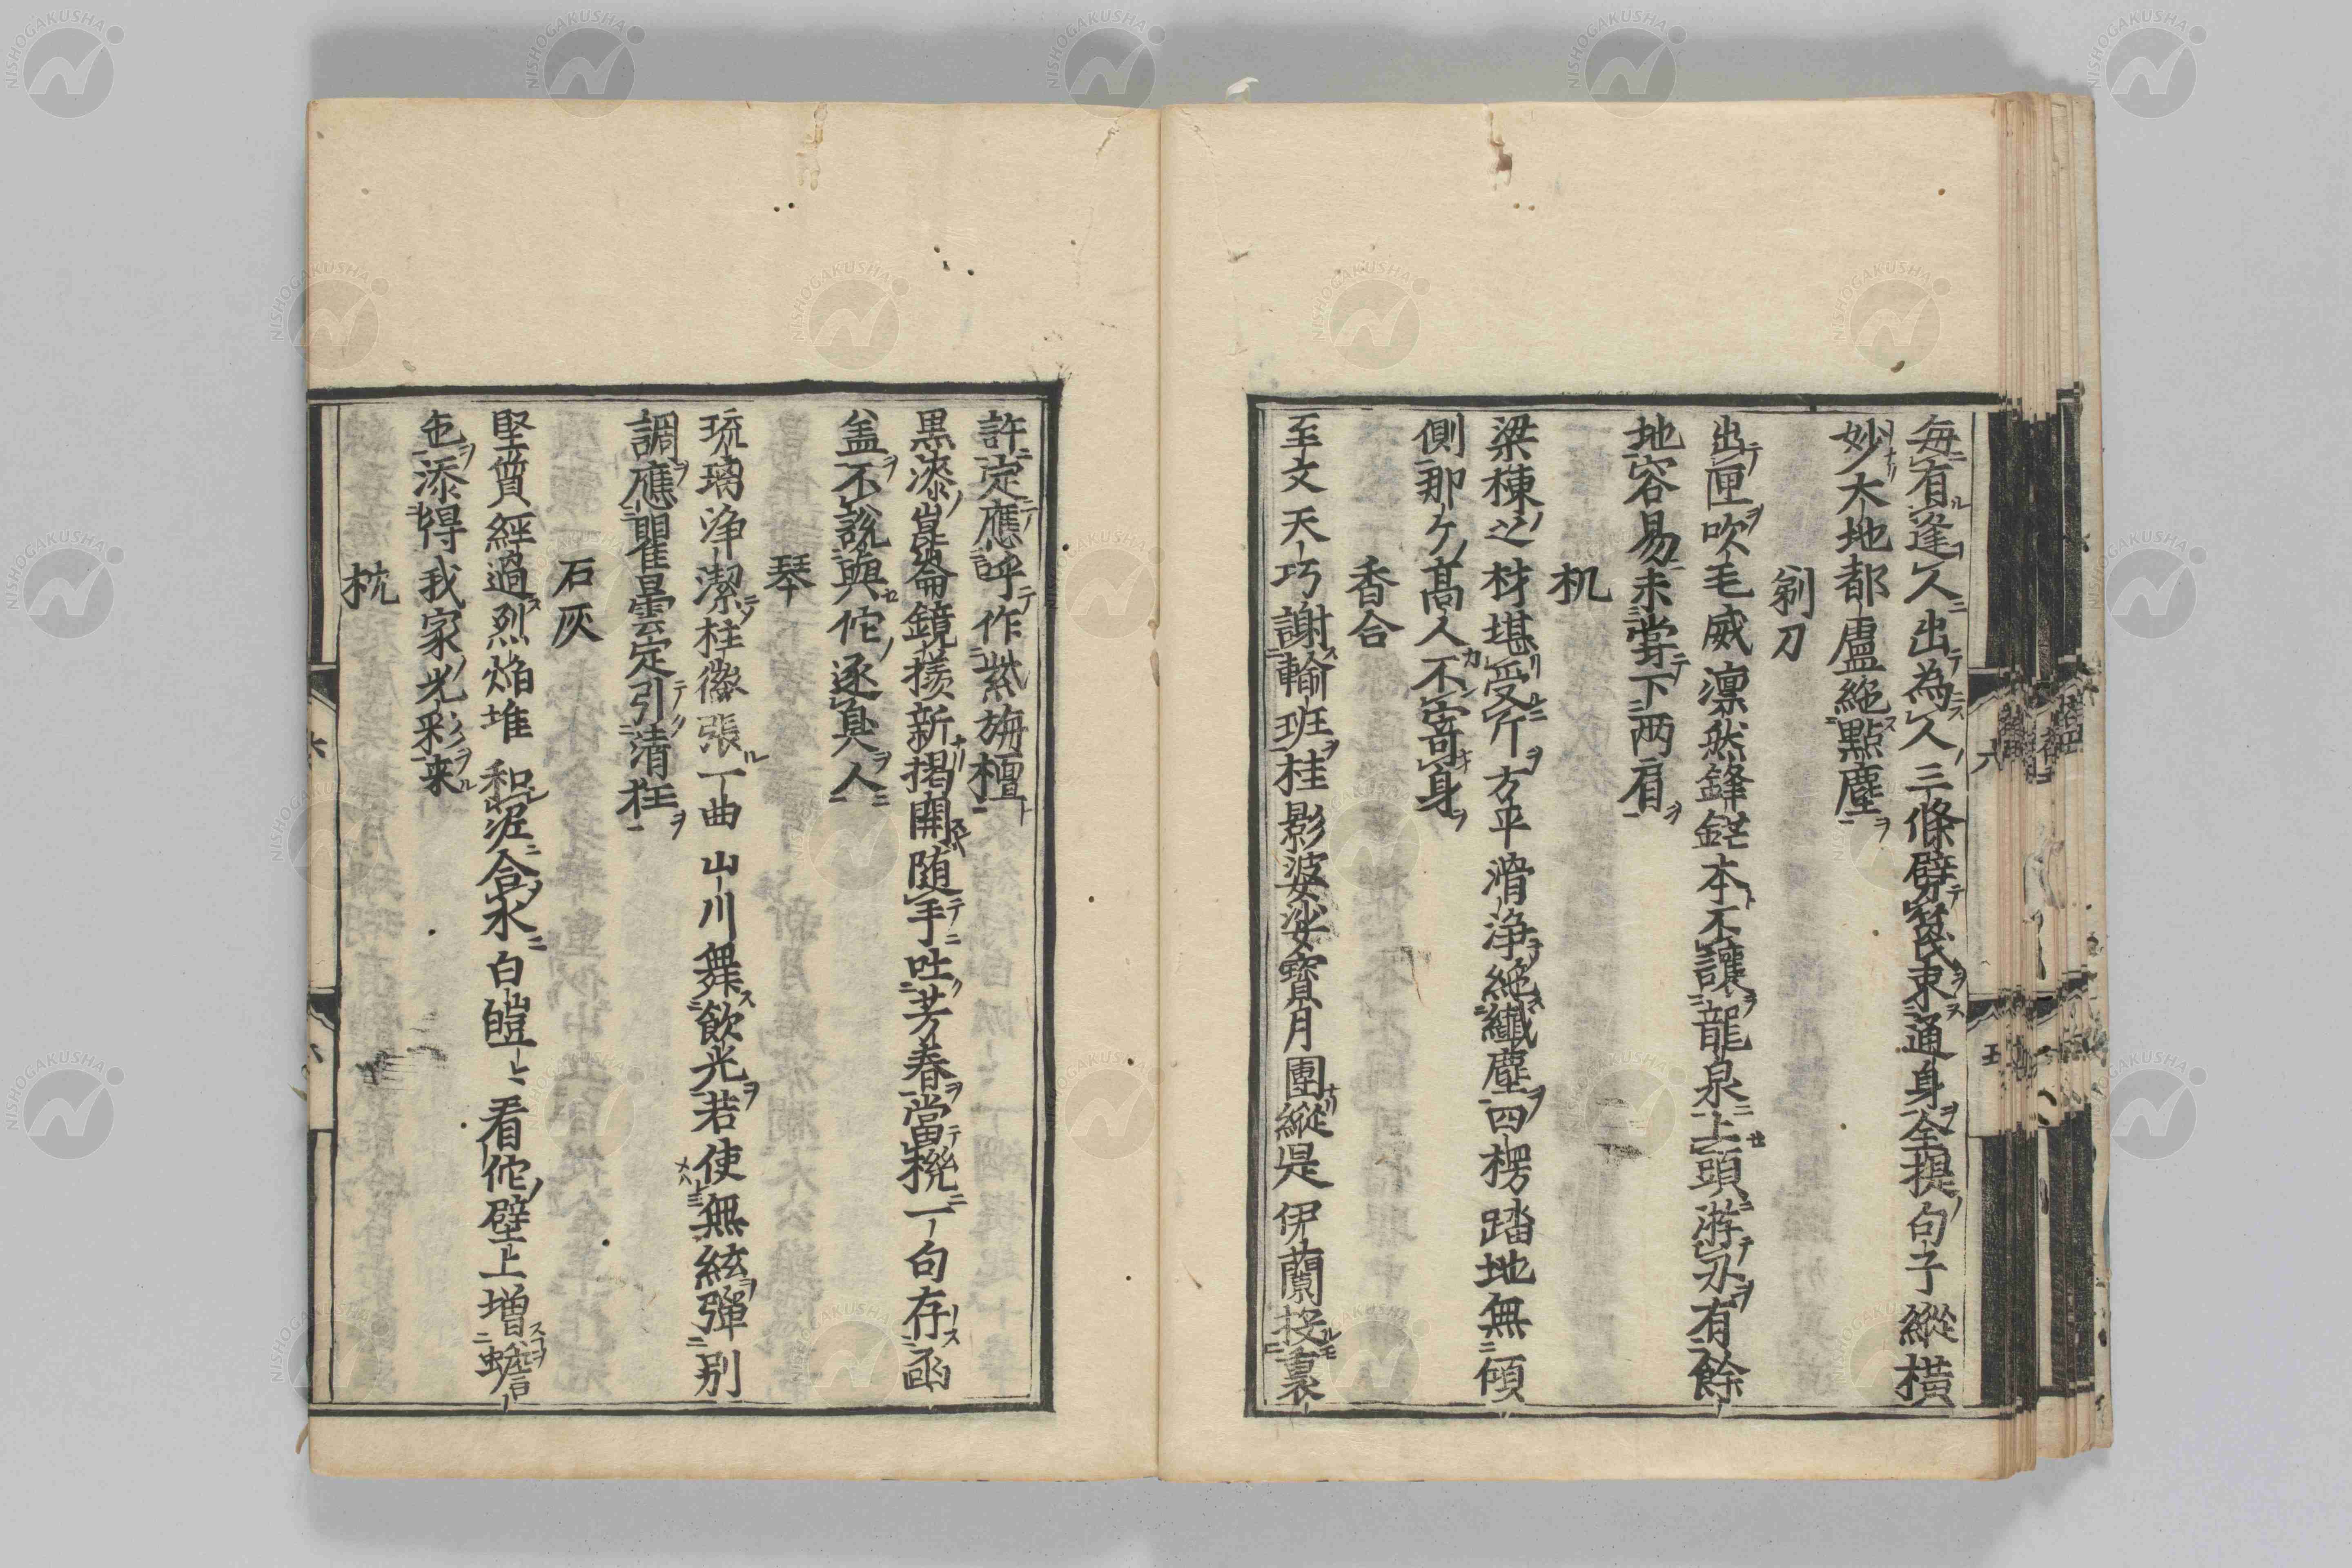 毎有逢人出為人三條劈䈏束通身全提句子縱横
妙大地都盧絶點塵
剃刀
出匣吹毛威凛然鋒鋩本不讓龍泉上頭游刃有餘
地容易未甞下两肩
机
梁棟之材堪受斤方平滑浄絶纖塵四楞踏地無傾
側那个髙人不寄身
香合
至文天巧謝輸班桂影婆娑寳月團縱是伊蘭投裏
許定應呼作紫旃檀
黒漆崑崙鏡㨾新掲開随手吐芳春當機一句存函
盖不說與佗逐臭人
琴
琉璃浄潔柱徽張一曲山川舞飲光若使無絃彈別
調應瞿曇定引清狂
石灰
堅質經過烈焔堆和泥合水白皚〻看佗壁上増蟾
色添得我家光彩来
枕
NISHOGAKUSHA